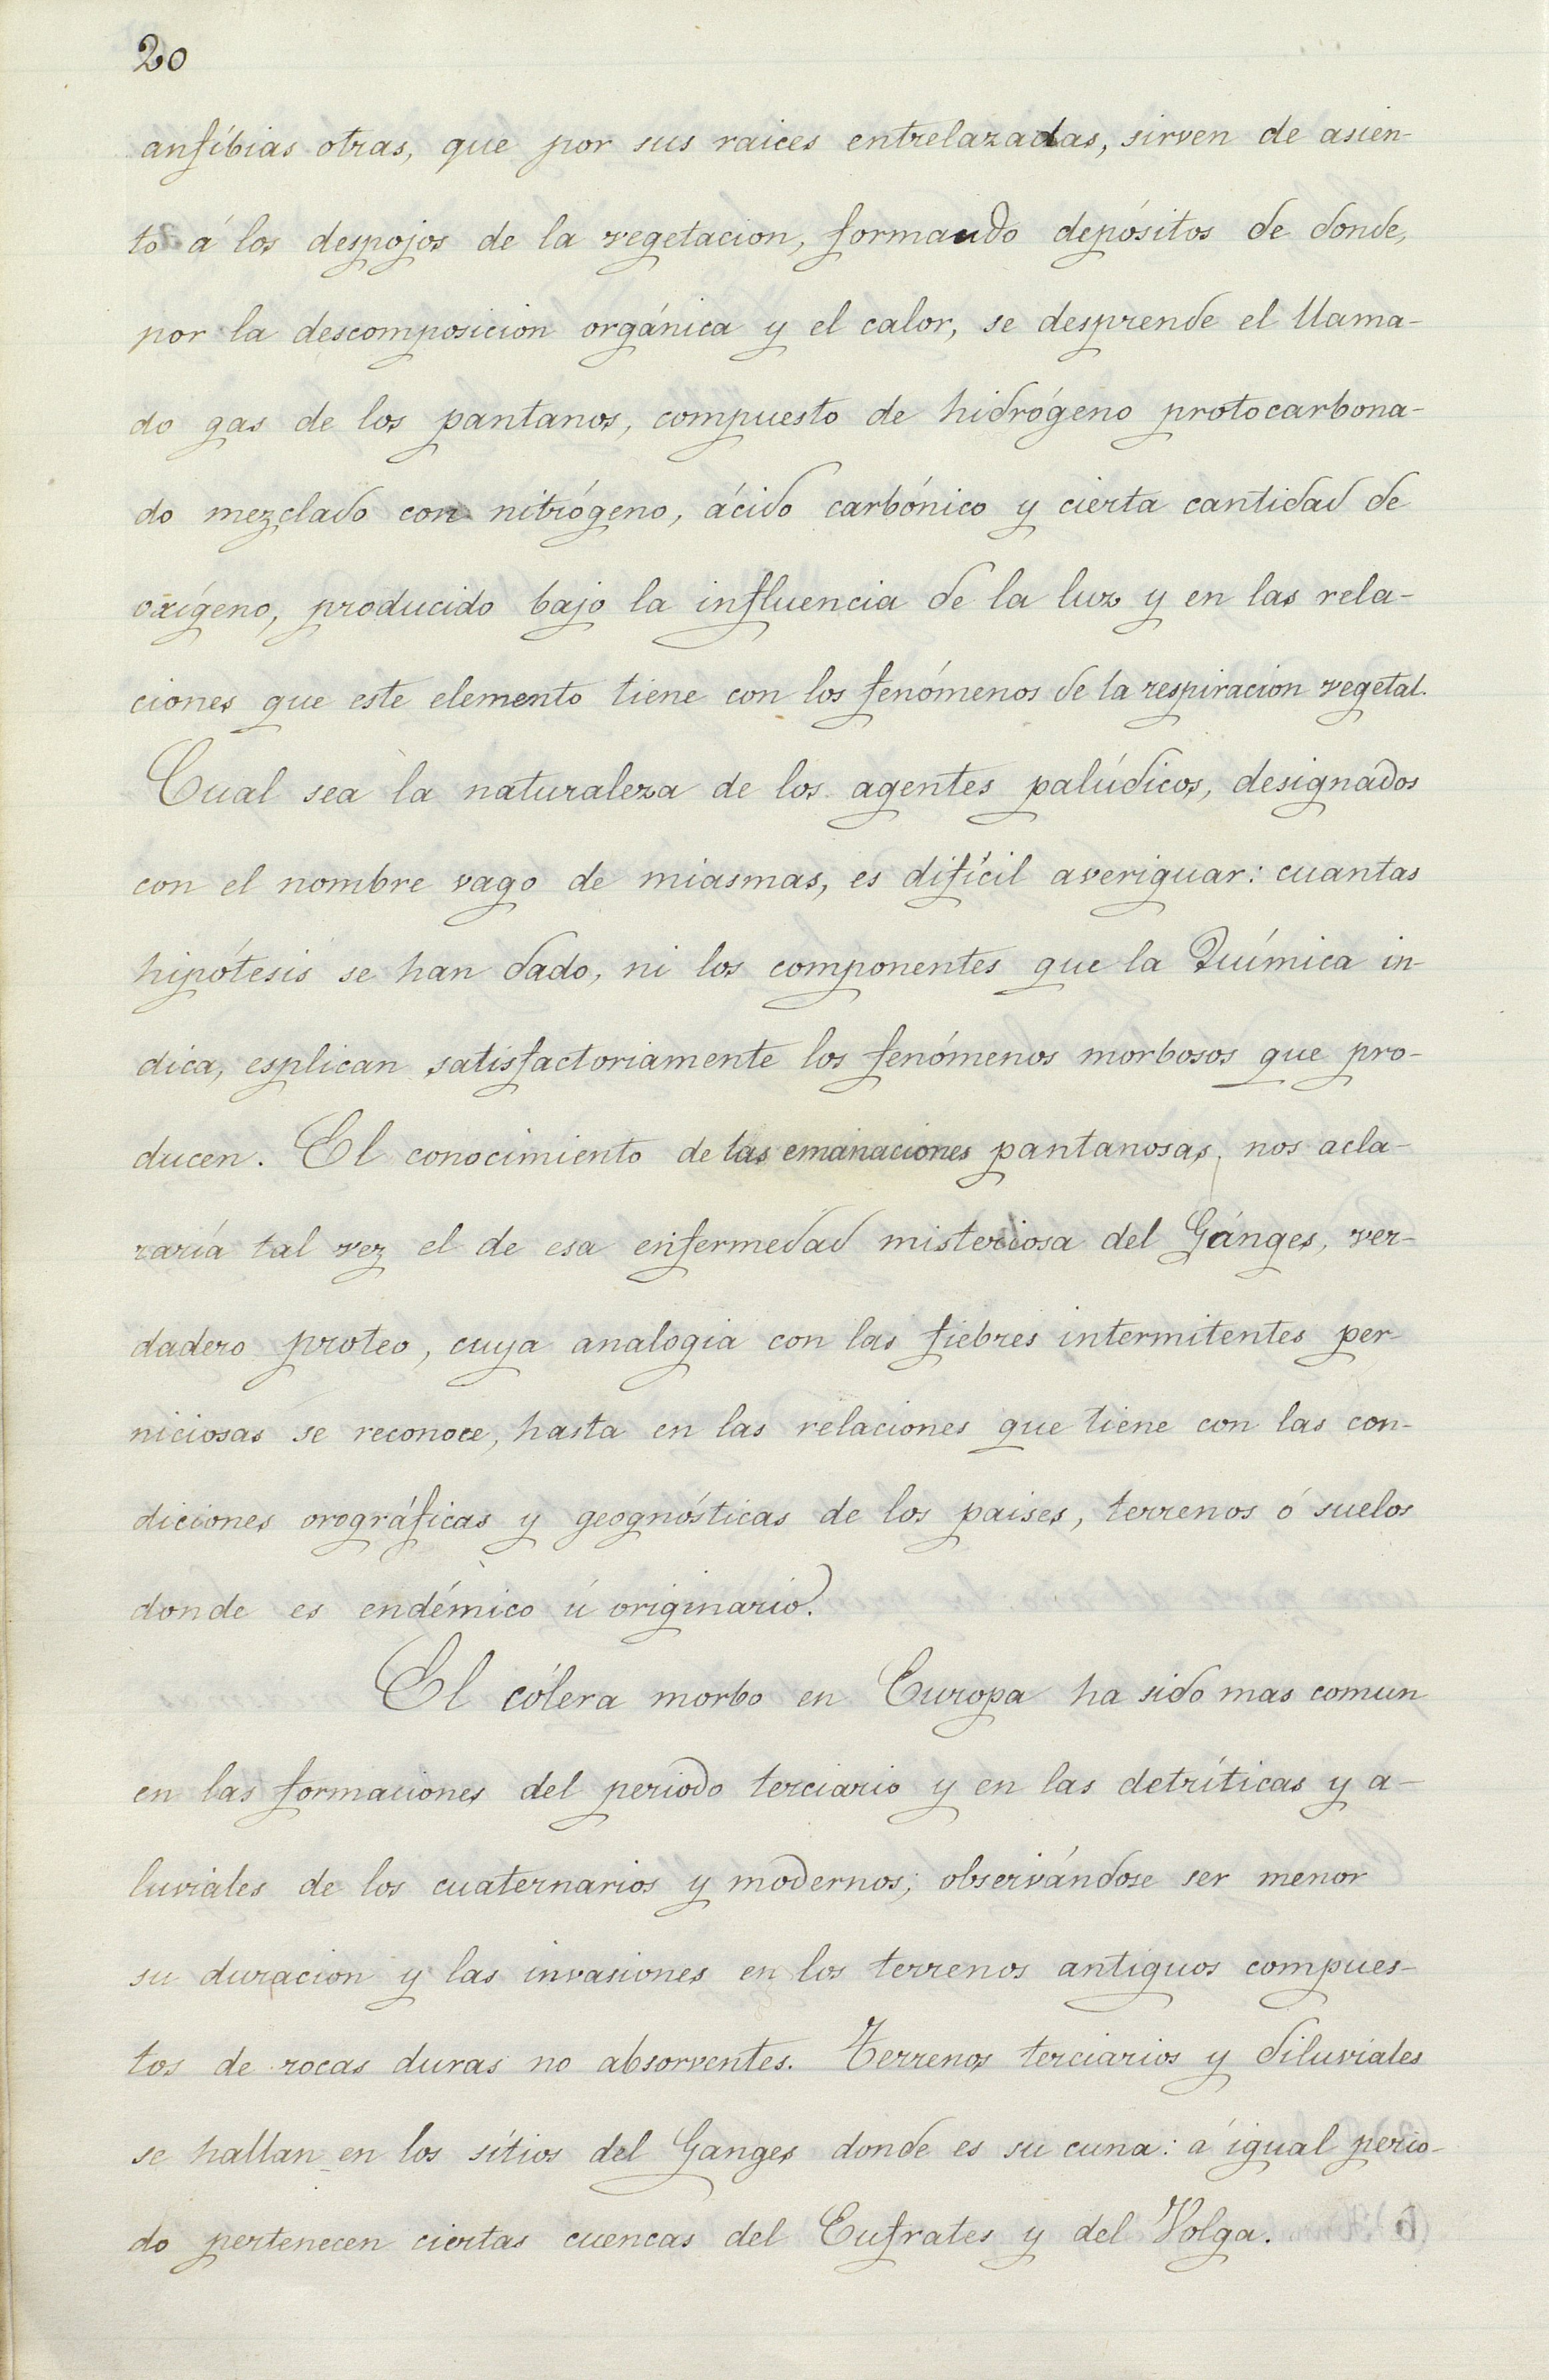 20
anfíbias otras, que por sus raices entrelazadas, sirven de asien-
to á los despojos de la vegetacion, formando depósitos de donde,
por la descomposicion orgánica y el calor, se desprende el llama-
do gas de los pantanos, compuesto de hidrógeno protocarbona-
do mezclado con nitrógeno, ácido carbónico y cierta cantidad de
oxígeno, producido bajo la influencia de la luz y en las rela-
ciones que este elemento tiene con los fenómenos de la respiracion vegetal.
Cual sea la naturaleza de los agentes palúdicos, designados
con el nombre vago de miasmas, es difícil averiguar: cuantas
hipótesis se han dado, ni los componentes que la Química in-
dica, esplican satisfactoriamente los fenómenos morbosos que pro-
ducen. El conocimiento de las emanaciones pantanosas, nos acla-
raría tal vez el de esa enfermedad misteriosa del Gánges, ver-
dadero proteo, cuya analogia con las fiebres intermitentes per-
niciosas se reconoce, hasta en las relaciones que tiene con las con-
diciones orográficas y geognósticas de los paises, terrenos ó suelos
donde es endémico ú originario.
El cólera morbo en Europa ha sido mas comun
en las formaciones del periodo terciario y en las detríticas y a-
luviales de los cuaternarios y modernos; observándose ser menor
su duracion y las invasiones en los terrenos antiguos compues-
tos de rocas duras no absorventes. Terrenos terciarios y diluviales
se hallan en los sítios del Ganges donde es su cuna: á igual perio-
do pertenecen ciertas cuencas del Eufrates y del Volga.